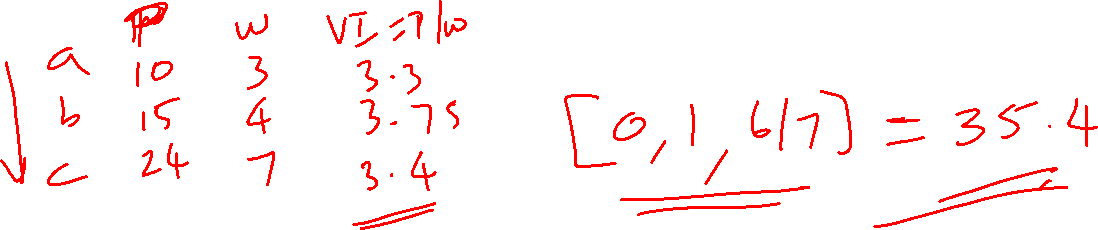 P w VI = P/w
a 10 3 3.3
b 15 4 3.75
c 24 7 3.4
[0, 1, 6/7] = 35.4